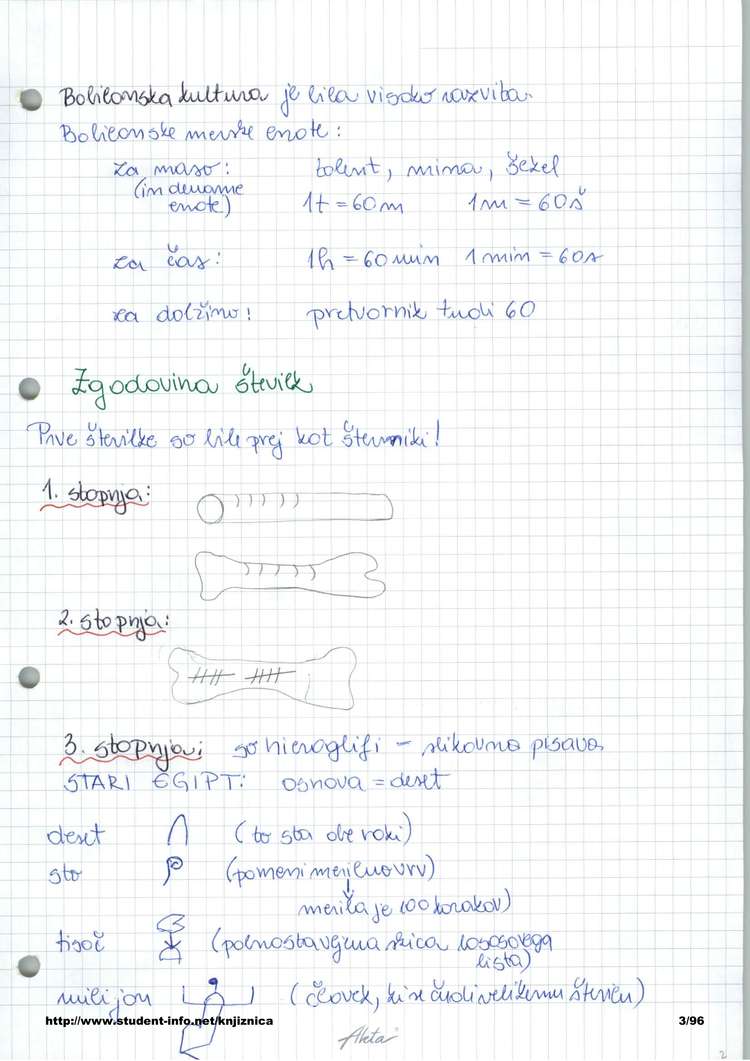 Babilonska kultura je bila visoko razvita.
Babilonske merske enote:
za maso: talent, mina, šekel
(in denarne
enote) 1t = 60m 1m = 60š
za čas: 1h = 60 min 1 min = 60s
za dolžino: pretvornik tudi 60
Zgodovina številk
Prve številke so bile prej kot števniki!
1. stopnja:
2. stopnja:
3. stopnja: so hieroglifi - slikovna pisava
STARI EGIPT: osnova = deset
deset (to sta obe roki)
sto (pomeni merilno vrv)
↓
merila je 100 korakov)
tisoč (poenostavljena skica lososovega
lista)
milijon (človek, ki se čudi velikemu številu)
http://www.student-info.net/knjiznica 3/96
2